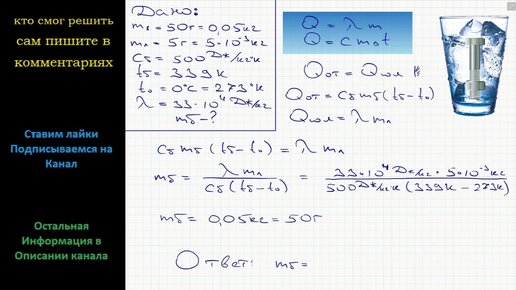 кто смог решить
сам пишите в
комментариях
Ставим лайки
Подписываемся на
Канал
Остальная
Информация в
Описании канала
Дано:
mв = 50г = 0,05кг
mл = 5г = 5·10⁻³кг
Cб = 500 Дж/кг к
tб = 339к
t₀ = 0°C = 273°к
λ = 33·10⁴ Дж/кг
mб - ?
Q = λ m
Q = c m ∆t
Qот = Qпл
Qот = Cб mб (tб - t₀)
Qпл = λ mл
Cб mб (tб - t₀) = λ mл
mб = λ mл / Cб (tб - t₀) = 33·10⁴ Дж/кг · 5·10⁻³кг / 500 Дж/кг к (339к - 273к)
mб = 0,05кг = 50г
Ответ: mб =